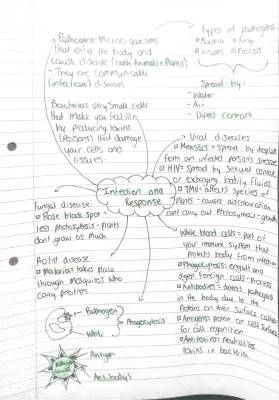 Types of pathogens
Bacteria Fungi
Viruses Protist
Pathogens: Microorganisms
that enter the body and
cause disease (both Animals + Plants)
- They are communicable
(infectious) diseases
Spread by:
- Water
- Air
- Direct contact
Bacteria: very Small cells
that make you feel ill
by producing toxins
(Poisons) that damage
your cells and
tissues.
Infection and
Response
Viral diseases
Measles: spread by droplets
from an infected persons sneeze
HIV: Spread by Sexual contact
or exchanging bodily fluids
TMV: affects species of
Plants - causes discolouration
cant carry out Photosynthesis - growth
Fungal disease:
Rose black spot -
less photosynthesis - plants
dont grow as much
Protist disease:
Malaria: takes place
through mosquitos who
carry protists.
White blood cells: part of
your immune system that
Protects body from infection
Phagocytosis: engulf and
digest foreign cells - Process
Antibodies: detect pathogens
in the body due to the
Proteins on their surface
Antigens: protein on cell Surface
for cell recognition
Antitoxins: neutralise
toxins in bacteria
Pathogen
Phagocytosis
WBC
Antigen
Antibodys